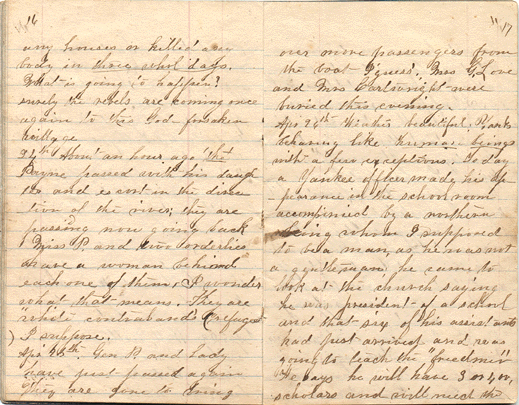 16
any houses or killed any
body in three whol days.
What is going to happen?
surely the rebels are coming once
again to this God forsaken
village
24th About an hour ago the
Payne passed with his daugh
ters and escort in the direc
tion of the river; they are
passing now going back
Miss P. and two orderlies
have a woman behind
each one of them, I wonder
what that means. They are
"white contraband" (refugees
) I suppose.
Apr 25th. Gen P. and Lady
have just passed again
They are gone to bring
17
our more passengers from
the boat I guess. Mrs G. Love
and Mrs Cartwright were
buried this evening.
Apr 26th This beautiful
behaving like human beings
with a few exceptions. To day
a Yankee officer made his ap
pearance in the school room
accompinied by a northern
being whom I supposed
to be a man, as he was not
a gentleman, he came to
look at the church saying
he was president of a school
and that six of his assistants
had just arrived and was
going to teach the "freedmen"
He says he will have 3 or 400,
scholars and will need the